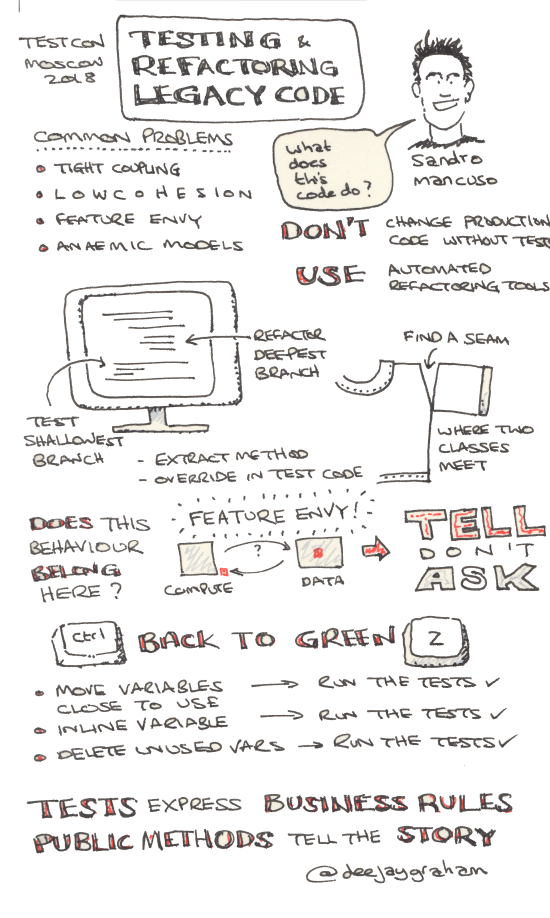 TESTCON
MOSCOW
2018
TESTING &
REFACTORING
LEGACY CODE
COMMON PROBLEMS
• TIGHT COUPLING
• LOW COHESION
• FEATURE ENVY
• ANAEMIC MODELS
what
does
this
code do?
Sandro
mancuso
DON'T CHANGE PRODUCTION
CODE WITHOUT TEST
USE AUTOMATED
REFACTORING TOOLS
REFACTOR
DEEPEST
BRANCH
TEST
SHALLOWEST
BRANCH
- EXTRACT METHOD
- OVERRIDE IN TEST CODE
FIND A SEAM
WHERE TWO
CLASSES
MEET
DOES THIS
BEHAVIOUR
BELONG
HERE?
FEATURE ENVY!
?
COMPUTE
DATA
TELL
DON'T
ASK
Ctrl BACK TO GREEN Z
• MOVE VARIABLES → RUN THE TESTS ✓
CLOSE TO USE
• INLINE VARIABLE → RUN THE TESTS ✓
• DELETE UNUSED VARS → RUN THE TESTS ✓
TESTS EXPRESS BUSINESS RULES
PUBLIC METHODS TELL THE STORY
@deejaygraham